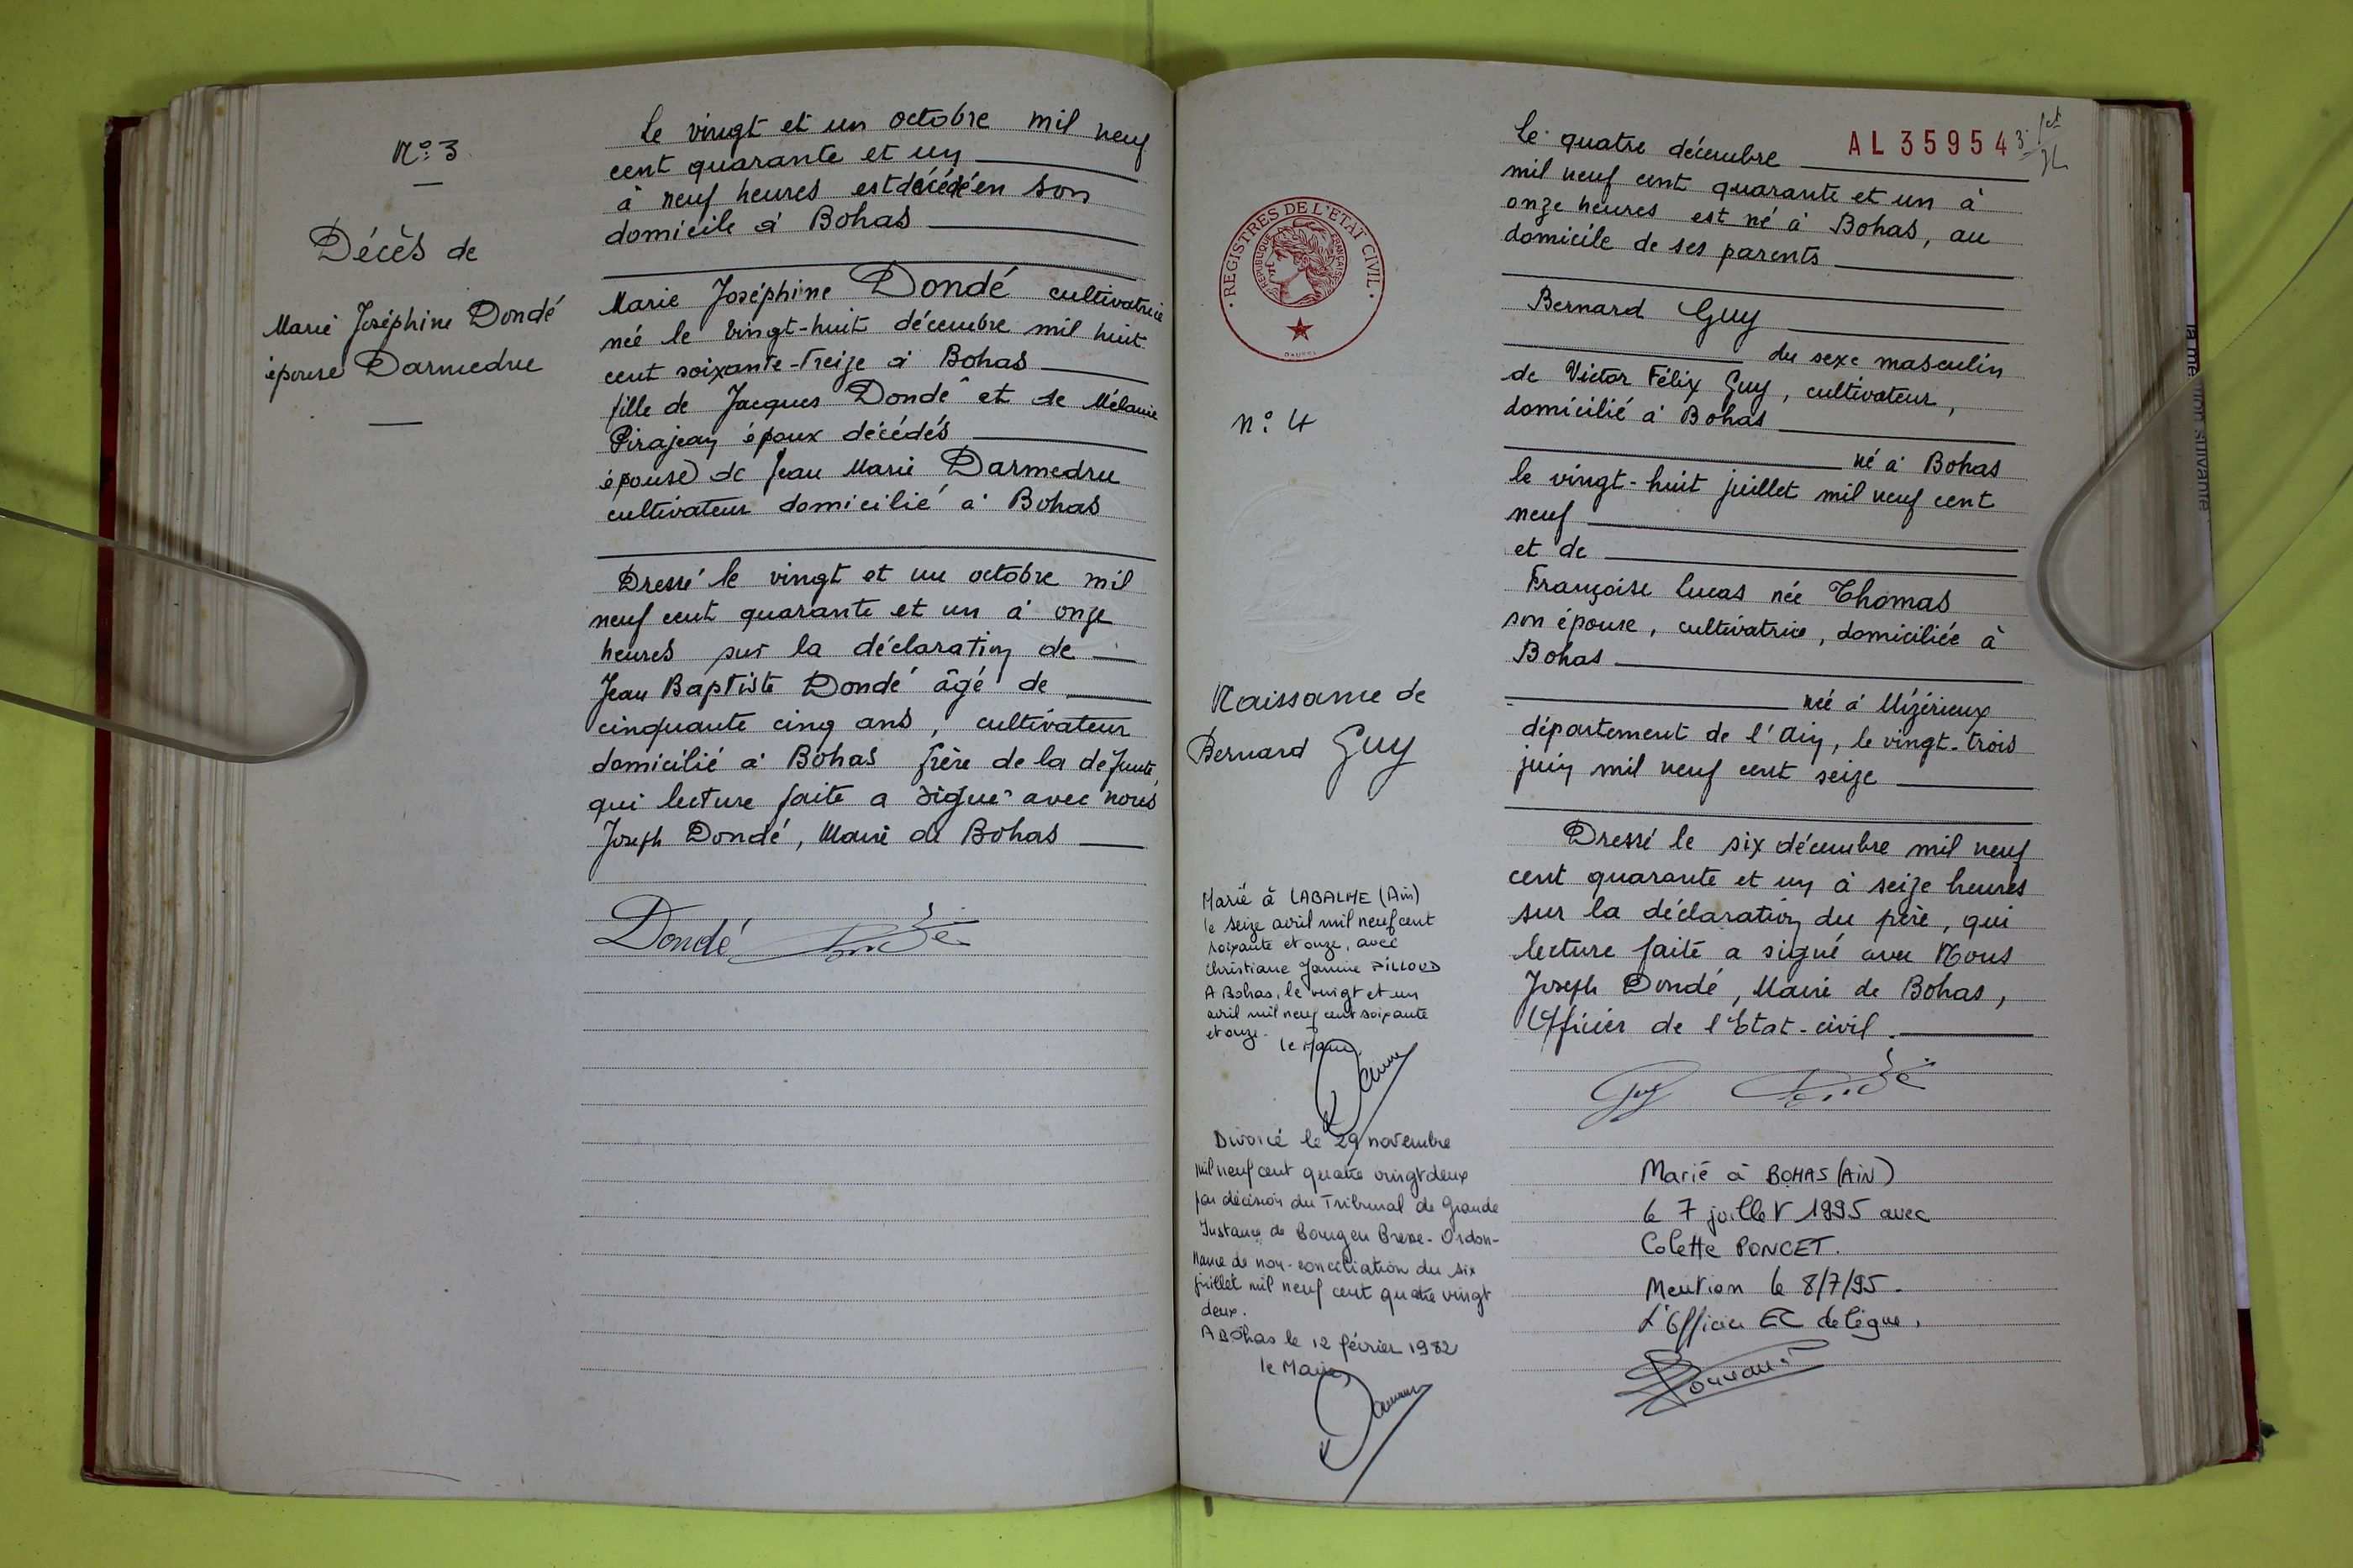 N° 3
Décès de
Marie Joséphine Dondé
épouse Darmedru
Le vingt et un octobre mil neuf
cent quarante et un
à neuf heures est décédé en son
domicile à Bohas
Marie Joséphine Dondé cultivatrice
née le vingt-huit décembre mil huit
cent soixante-treize à Bohas
fille de Jacques Dondé et de Mélanie
Pirajean époux décédés
épouse de Jean Marie Darmedru
cultivateur domicilié à Bohas
Dressé le vingt et un octobre mil
neuf cent quarante et un à onze
heures sur la déclaration de
Jean Baptiste Dondé âgé de
cinquante cinq ans, cultivateur
domicilié à Bohas frère de la défunte,
qui lecture faite a signé avec nous
Joseph Dondé, Maire de Bohas
Dondé
REGISTRES DE L'ETAT CIVIL
REPUBLIQUE FRANÇAISE
N° 4
Naissance de
Bernard Guy
Marié à LABALME (Ain)
le seize avril mil neuf cent
soixante et onze, avec
Christiane Janine PILLOUD
A Bohas, le vingt et un
avril mil neuf cent soixante
et onze.
le Maire
Divorcé le 29 novembre
mil neuf cent quatre vingt deux
par décision du Tribunal de Grande
Instance de Bourg en Bresse. Ordon-
nance de non-conciliation du six
juillet mil neuf cent quatre vingt
deux.
A Bohas le 12 février 1982
le Maire,
AL 35954
Le quatre décembre
mil neuf cent quarante et un à
onze heures est né à Bohas, au
domicile de ses parents
Bernard Guy
du sexe masculin
de Victor Félix Guy, cultivateur,
domicilié à Bohas
né à Bohas
le vingt-huit juillet mil neuf cent
neuf
et de
Françoise Lucas née Thomas
son épouse, cultivatrice, domiciliée à
Bohas
née à Mizérieux
département de l'Ain, le vingt-trois
juin mil neuf cent seize
Dressé le six décembre mil neuf
cent quarante et un à seize heures
sur la déclaration du père, qui
lecture faite a signé avec Nous
Joseph Dondé, Maire de Bohas,
Officier de l'Etat-civil.
Guy
Marié à BOHAS (AIN)
le 7 juillet 1995 avec
Colette PONCET.
Mention le 8/7/95.
L'Officier EC délégué,